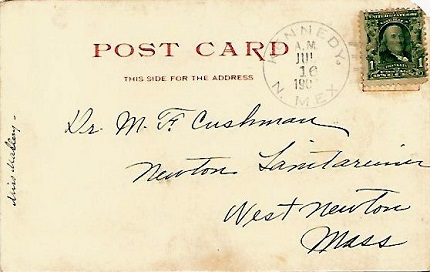 POST CARD
THIS SIDE FOR THE ADDRESS
KENNEDY,
A.M.
JUL
16
190
N. MEX
1 1
Dr. M. F. Cushman
Newton Sanitarium
West Newton
Mass